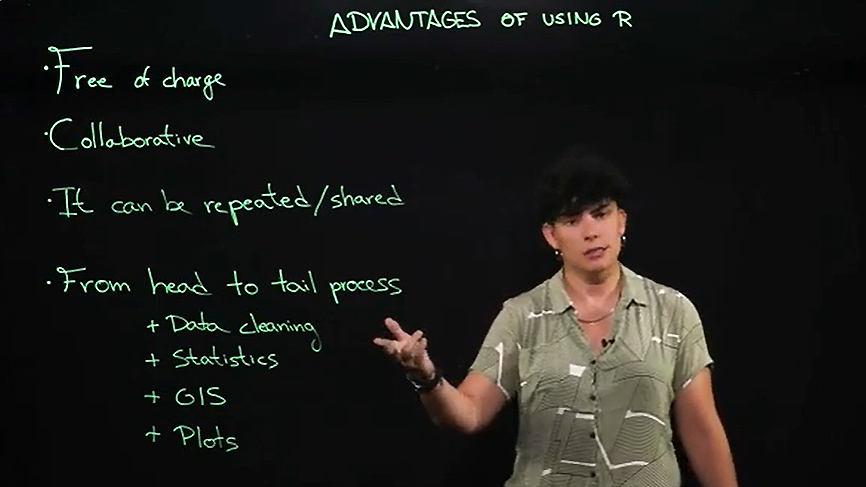 ADVANTAGES OF USING R
· Free of charge
· Collaborative
· It can be repeated/shared
· From head to tail process
+ Data cleaning
+ Statistics
+ GIS
+ Plots